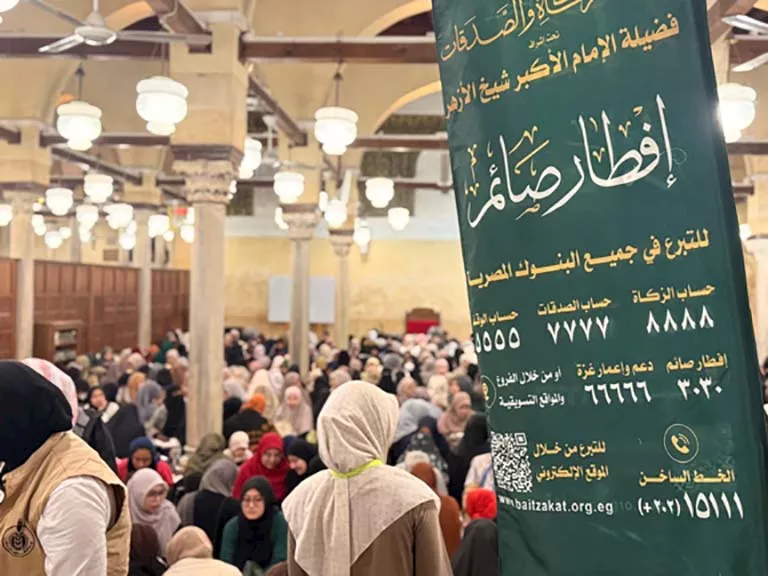 الزكاة والصدقات
تحت إشراف
فضيلة الإمام الأكبر شيخ الأزهر
إفطار صائم
للتبرع في جميع البنوك المصرية
حساب الزكاة حساب الصدقات حساب الوقف
٨٨٨٨ ٧٧٧٧ ٥٥٥٥
إفطار صائم دعم وإعمار غزة أو من خلال الفروع
٣٠٣٠ ٦٦٦٦٦ والمواقع التسويقية
الخط الساخن للتبرع من خلال
الموقع الإلكتروني
(+٢٠٢) ١٥١١١ www.baitzakat.org.eg